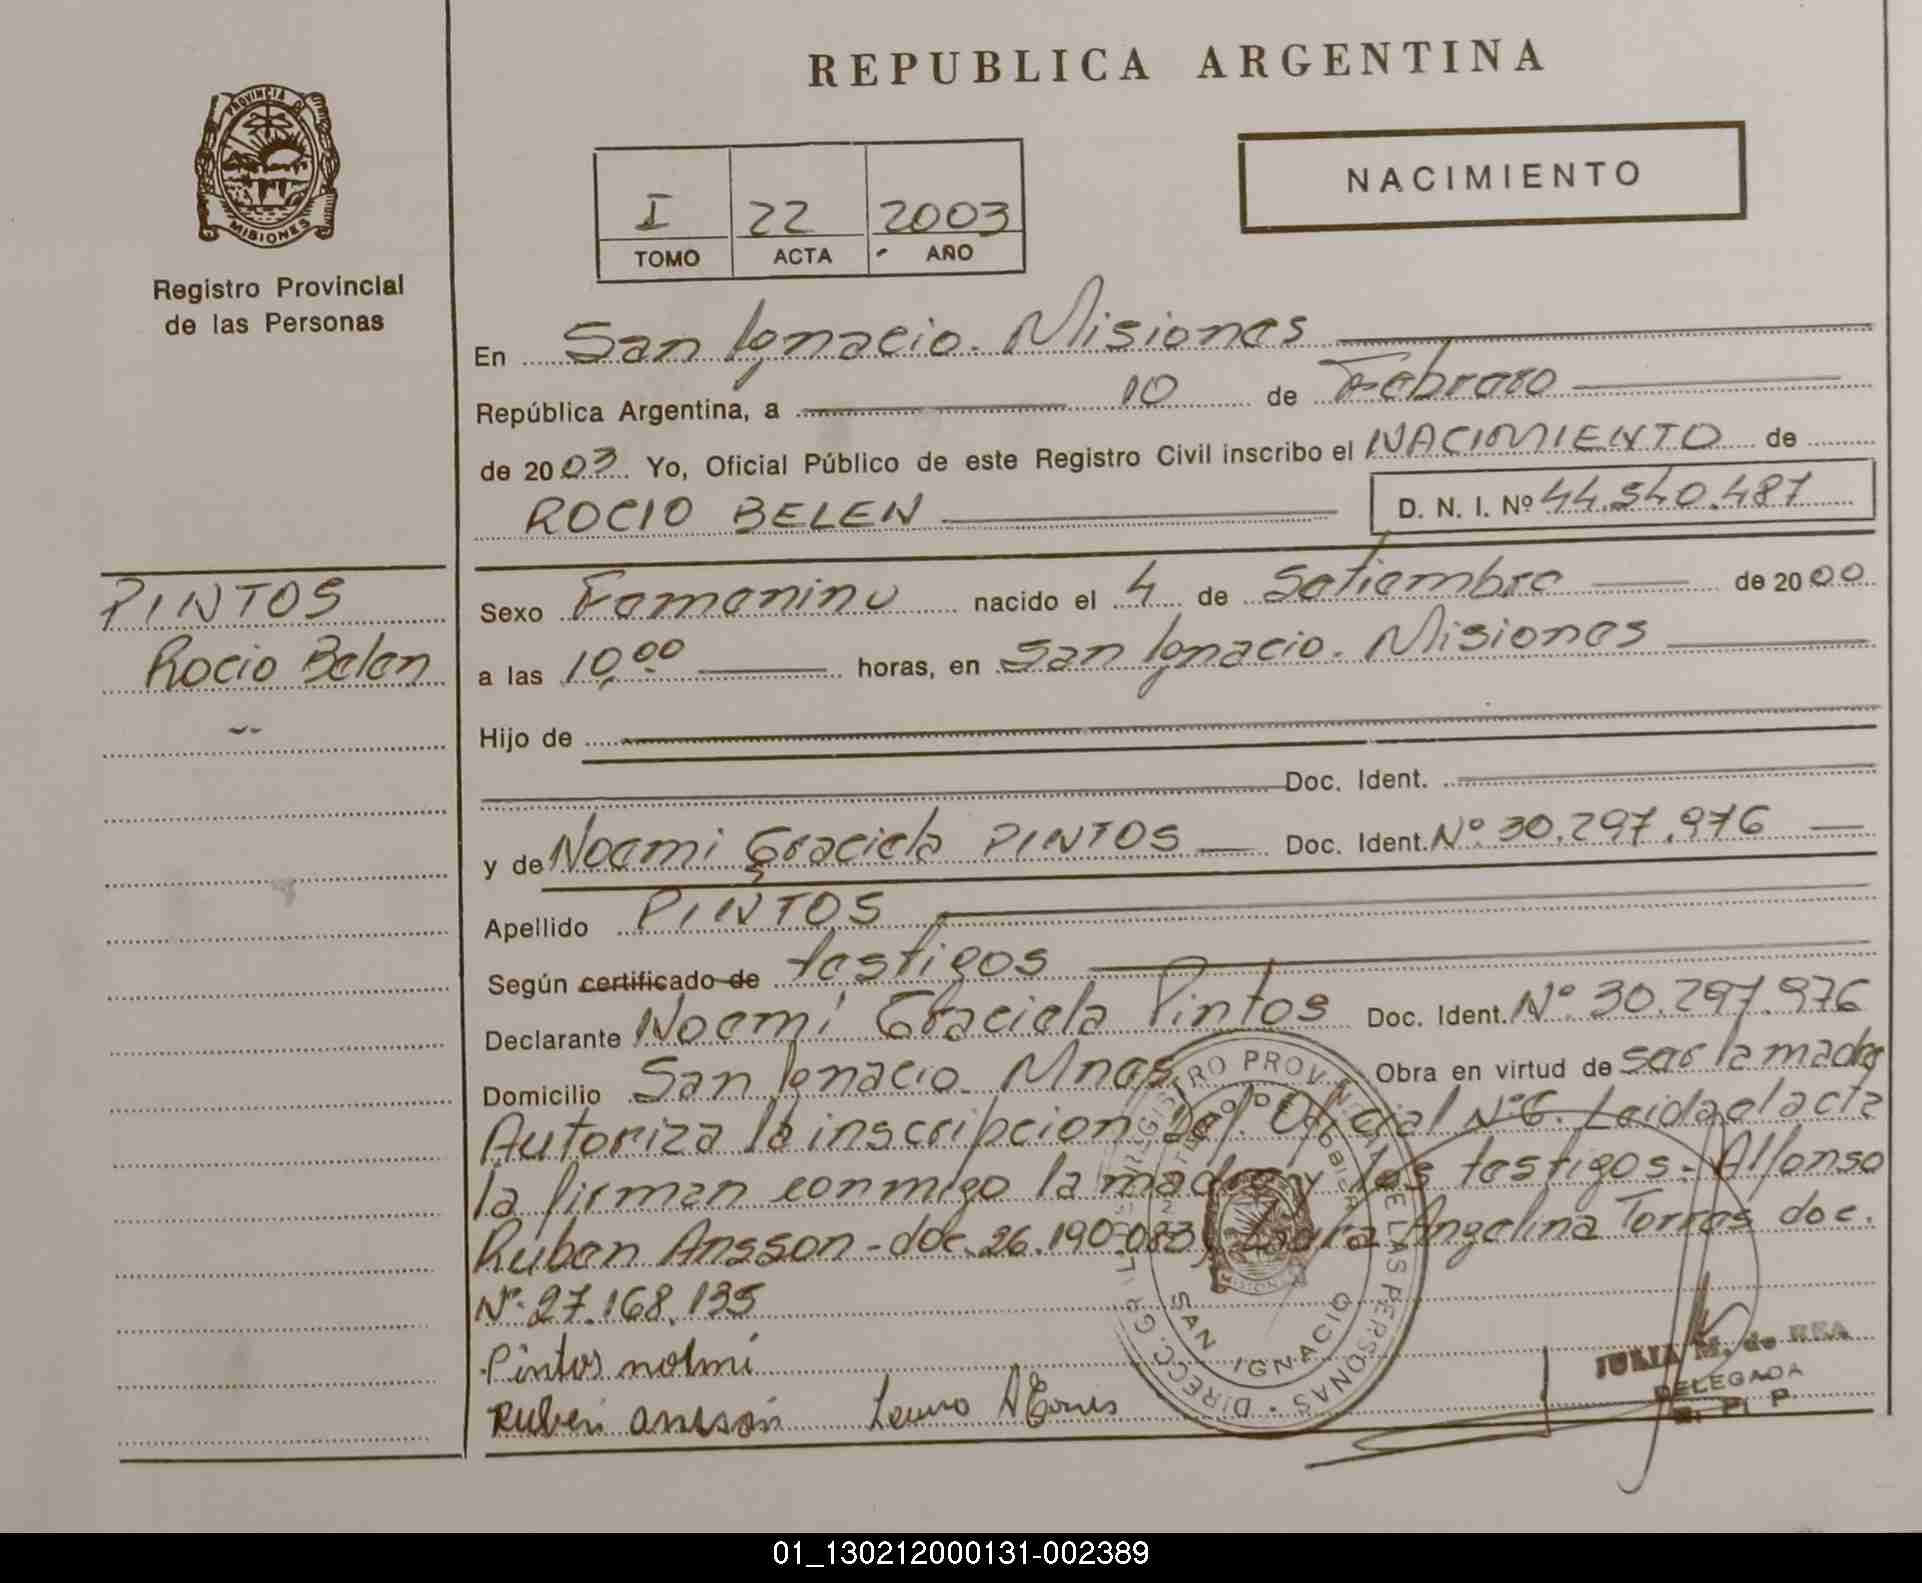 REPUBLICA ARGENTINA
PROVINCIA DE
MISIONES
Registro Provincial
de las Personas
I 22 2003
TOMO ACTA AÑO
NACIMIENTO
En San Ignacio. Misiones
República Argentina, a 10 de Febrero
de 2003 Yo, Oficial Público de este Registro Civil inscribo el NACIMIENTO de
ROCIO BELEN D. N. I. Nº 44.540.487
PINTOS
Rocio Belen
Sexo Femenino nacido el 4 de Setiembre de 2000
a las 10,00 horas, en San Ignacio. Misiones
Hijo de
Doc. Ident.
y de Noemi Graciela PINTOS Doc. Ident. Nº 30.297.976
Apellido PINTOS
Según certificado de testigos
Declarante Noemi Graciela Pintos Doc. Ident. Nº 30.297.976
Domicilio San Ignacio. Mnes Obra en virtud de ser la madre
Autoriza la inscripcion Oficial Nº6. Leida el acta
la firman conmigo la madre y los testigos: Alfonso
Ruben Ansson - doc. 26.190.083 y Laura Angelina Torres doc.
Nº 27.168.135
Pintos noemi
Ruben ansson
SAN IGNACIO
JULIA M. de REA
DELEGADA
R. P. P.
01_130212000131-002389